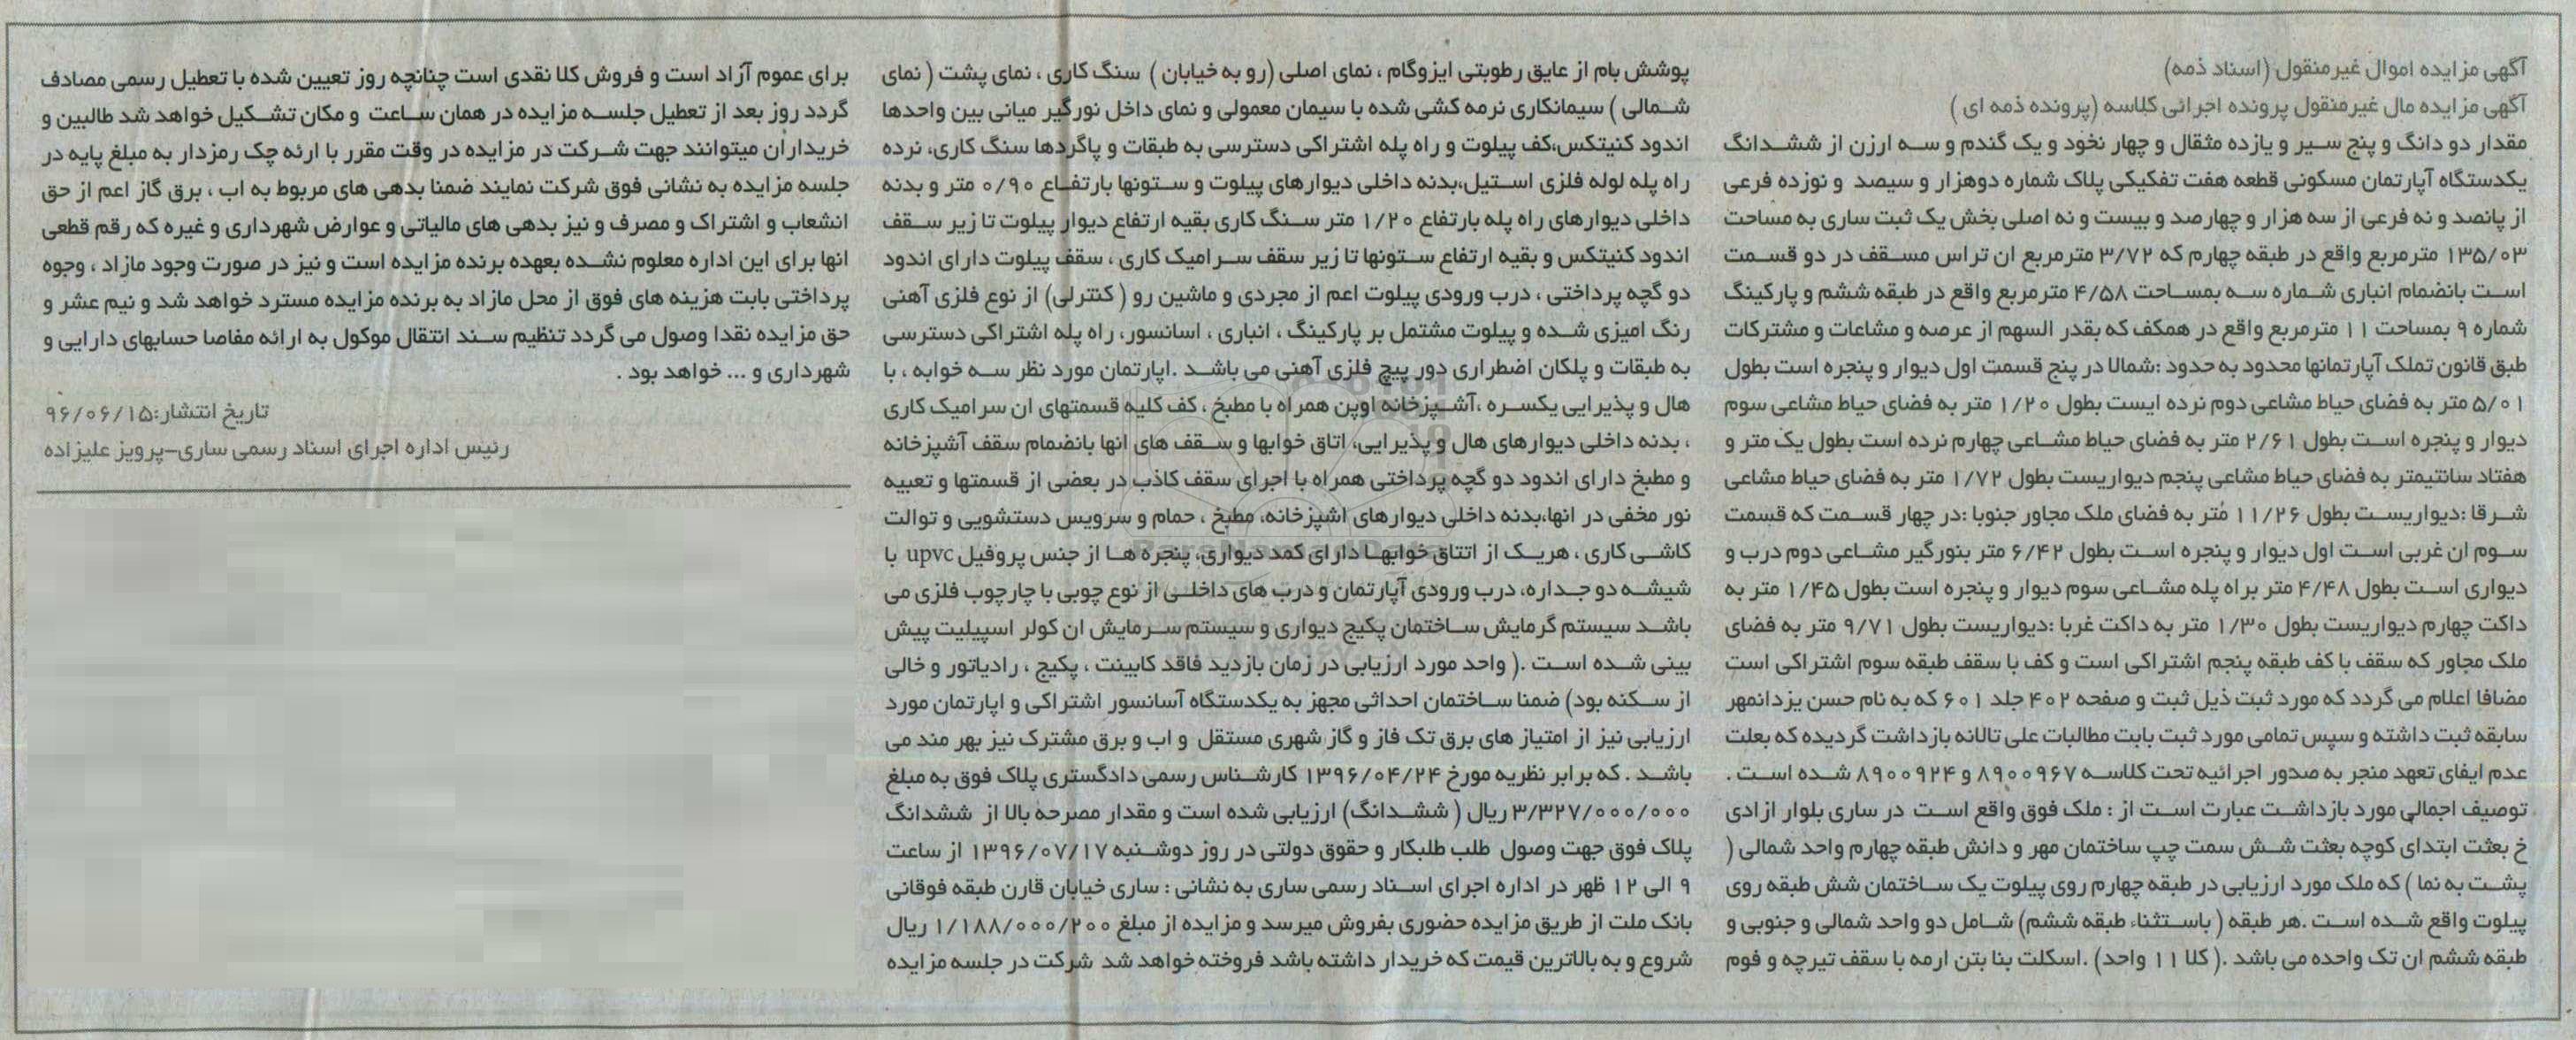 آگهی مزایده اموال غیرمنقول (اسناد ذمه)
آگهی مزایده مال غیرمنقول پرونده اجرائی کلاسه (پرونده ذمه ای )
مقدار دو دانگ و پنج سیر و یازده مثقال و چهار نخود و یک گندم و سه ارزن از ششدانگ
یکدستگاه آپارتمان مسکونی قطعه هفت تفکیکی پلاک شماره دوهزار و سیصد و نوزده فرعی
از پانصد و نه فرعی از سه هزار و چهارصد و بیست و نه اصلی بخش یک ثبت ساری به مساحت
۱۳۵/۰۳ مترمربع واقع در طبقه چهارم که ۳/۷۲ مترمربع ان تراس مسقف در دو قسمت
است بانضمام انباری شماره سه بمساحت ۴/۵۸ مترمربع واقع در طبقه ششم و پارکینگ
شماره ۹ بمساحت ۱۱ مترمربع واقع در همکف که بقدر السهم از عرصه و مشاعات و مشترکات
طبق قانون تملک آپارتمانها محدود به حدود :شمالا در پنج قسمت اول دیوار و پنجره است بطول
۵/۰۱ متر به فضای حیاط مشاعی دوم نرده ایست بطول ۱/۲۰ متر به فضای حیاط مشاعی سوم
دیوار و پنجره است بطول ۲/۶۱ متر به فضای حیاط مشاعی چهارم نرده است بطول یک متر و
هفتاد سانتیمتر به فضای حیاط مشاعی پنجم دیواریست بطول ۱/۷۲ متر به فضای حیاط مشاعی
شرقا :دیواریست بطول ۱۱/۲۶ متر به فضای ملک مجاور جنوبا :در چهار قسمت که قسمت
سوم ان غربی است اول دیوار و پنجره است بطول ۶/۴۲ متر بنورگیر مشاعی دوم درب و
دیواری است بطول ۴/۴۸ متر براه پله مشاعی سوم دیوار و پنجره است بطول ۱/۴۵ متر به
داکت چهارم دیواریست بطول ۱/۳۰ متر به داکت غربا :دیواریست بطول ۹/۷۱ متر به فضای
ملک مجاور که سقف با کف طبقه پنجم اشتراکی است و کف با سقف طبقه سوم اشتراکی است
مضافا اعلام می گردد که مورد ثبت ذیل ثبت و صفحه ۴۰۲ جلد ۶۰۱ که به نام حسن یزدانمهر
سابقه ثبت داشته و سپس تمامی مورد ثبت بابت مطالبات علی تالانه بازداشت گردیده که بعلت
عدم ایفای تعهد منجر به صدور اجرائیه تحت کلاسه ۸۹۰۰۹۶۷ و ۸۹۰۰۹۲۴ شده است .
توصیف اجمالی مورد بازداشت عبارت است از : ملک فوق واقع است در ساری بلوار ازادی
خ بعثت ابتدای کوچه بعثت شش سمت چپ ساختمان مهر و دانش طبقه چهارم واحد شمالی (
پشت به نما ) که ملک مورد ارزیابی در طبقه چهارم روی پیلوت یک ساختمان شش طبقه روی
پیلوت واقع شده است .هر طبقه ( باستثناء طبقه ششم) شامل دو واحد شمالی و جنوبی و
طبقه ششم ان تک واحده می باشد .( کلا ۱۱ واحد) .اسکلت بنا بتن ارمه با سقف تیرچه و فوم
پوشش بام از عایق رطوبتی ایزوگام ، نمای اصلی (رو به خیابان ) سنگ کاری ، نمای پشت ( نمای
شمالی ) سیمانکاری نرمه کشی شده با سیمان معمولی و نمای داخل نورگیر میانی بین واحدها
اندود کنیتکس،کف پیلوت و راه پله اشتراکی دسترسی به طبقات و پاگردها سنگ کاری، نرده
راه پله لوله فلزی استیل،بدنه داخلی دیوارهای پیلوت و ستونها بارتفاع ۰/۹۰ متر و بدنه
داخلی دیوارهای راه پله بارتفاع ۱/۲۰ متر سنگ کاری بقیه ارتفاع دیوار پیلوت تا زیر سقف
اندود کنیتکس و بقیه ارتفاع ستونها تا زیر سقف سرامیک کاری ، سقف پیلوت دارای اندود
دو گچه پرداختی ، درب ورودی پیلوت اعم از مجردی و ماشین رو ( کنترلی) از نوع فلزی آهنی
رنگ امیزی شده و پیلوت مشتمل بر پارکینگ ، انباری ، اسانسور، راه پله اشتراکی دسترسی
به طبقات و پلکان اضطراری دور پیچ فلزی آهنی می باشد .اپارتمان مورد نظر سه خوابه ، با
هال و پذیرایی یکسره ،آشپزخانه اوپن همراه با مطبخ ، کف کلیه قسمتهای ان سرامیک کاری
، بدنه داخلی دیوارهای هال و پذیرایی، اتاق خوابها و سقف های انها بانضمام سقف آشپزخانه
و مطبخ دارای اندود دو گچه پرداختی همراه با اجرای سقف کاذب در بعضی از قسمتها و تعبیه
نور مخفی در انها،بدنه داخلی دیوارهای اشپزخانه، مطبخ ، حمام و سرویس دستشویی و توالت
کاشی کاری ، هریک از اتتاق خوابها دارای کمد دیواری، پنجره ها از جنس پروفیل upvc با
شیشه دو جداره، درب ورودی آپارتمان و درب های داخلی از نوع چوبی با چارچوب فلزی می
باشد سیستم گرمایش ساختمان پکیج دیواری و سیستم سرمایش ان کولر اسپیلیت پیش
بینی شده است .( واحد مورد ارزیابی در زمان بازدید فاقد کابینت ، پکیج ، رادیاتور و خالی
از سکنه بود) ضمنا ساختمان احداثی مجهز به یکدستگاه آسانسور اشتراکی و اپارتمان مورد
ارزیابی نیز از امتیاز های برق تک فاز و گاز شهری مستقل و اب و برق مشترک نیز بهر مند می
باشد . که برابر نظریه مورخ ۱۳۹۶/۰۴/۲۴ کارشناس رسمی دادگستری پلاک فوق به مبلغ
۳/۳۲۷/۰۰۰/۰۰۰ ریال ( ششدانگ) ارزیابی شده است و مقدار مصرحه بالا از ششدانگ
پلاک فوق جهت وصول طلب طلبکار و حقوق دولتی در روز دوشنبه ۱۳۹۶/۰۷/۱۷ از ساعت
۹ الی ۱۲ ظهر در اداره اجرای اسناد رسمی ساری به نشانی : ساری خیابان قارن طبقه فوقانی
بانک ملت از طریق مزایده حضوری بفروش میرسد و مزایده از مبلغ ۱/۱۸۸/۰۰۰/۲۰۰ ریال
شروع و به بالاترین قیمت که خریدار داشته باشد فروخته خواهد شد شرکت در جلسه مزایده
برای عموم آزاد است و فروش کلا نقدی است چنانچه روز تعیین شده با تعطیل رسمی مصادف
گردد روز بعد از تعطیل جلسه مزایده در همان ساعت و مکان تشکیل خواهد شد طالبین و
خریداران میتوانند جهت شرکت در مزایده در وقت مقرر با ارئه چک رمزدار به مبلغ پایه در
جلسه مزایده به نشانی فوق شرکت نمایند ضمنا بدهی های مربوط به اب ، برق گاز اعم از حق
انشعاب و اشتراک و مصرف و نیز بدهی های مالیاتی و عوارض شهرداری و غیره که رقم قطعی
انها برای این اداره معلوم نشده بعهده برنده مزایده است و نیز در صورت وجود مازاد ، وجوه
پرداختی بابت هزینه های فوق از محل مازاد به برنده مزایده مسترد خواهد شد و نیم عشر و
حق مزایده نقدا وصول می گردد تنظیم سند انتقال موکول به ارائه مفاصا حسابهای دارایی و
شهرداری و ... خواهد بود .
تاریخ انتشار:۹۶/۰۶/۱۵
رئیس اداره اجرای اسناد رسمی ساری–پرویز علیزاده